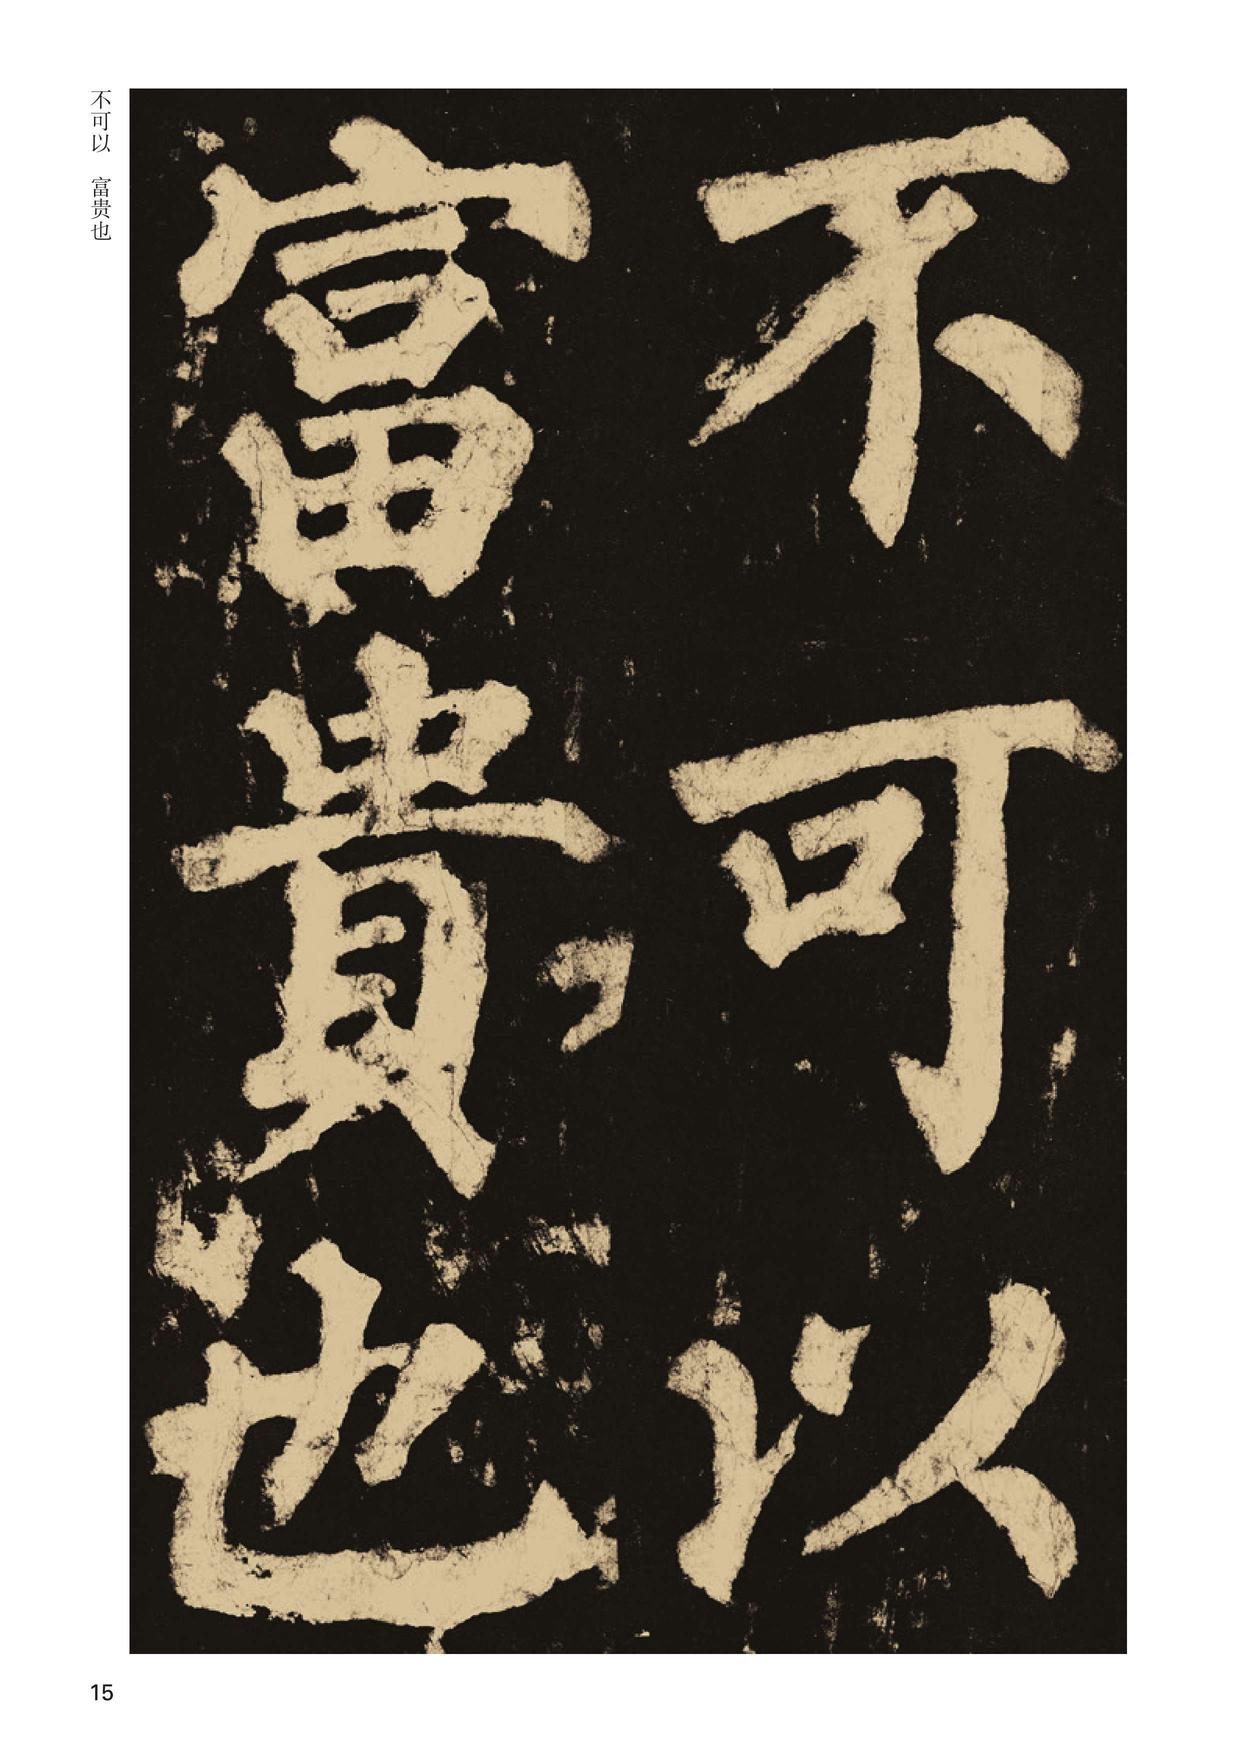 不可以 富贵也
不可以
富貴也
15